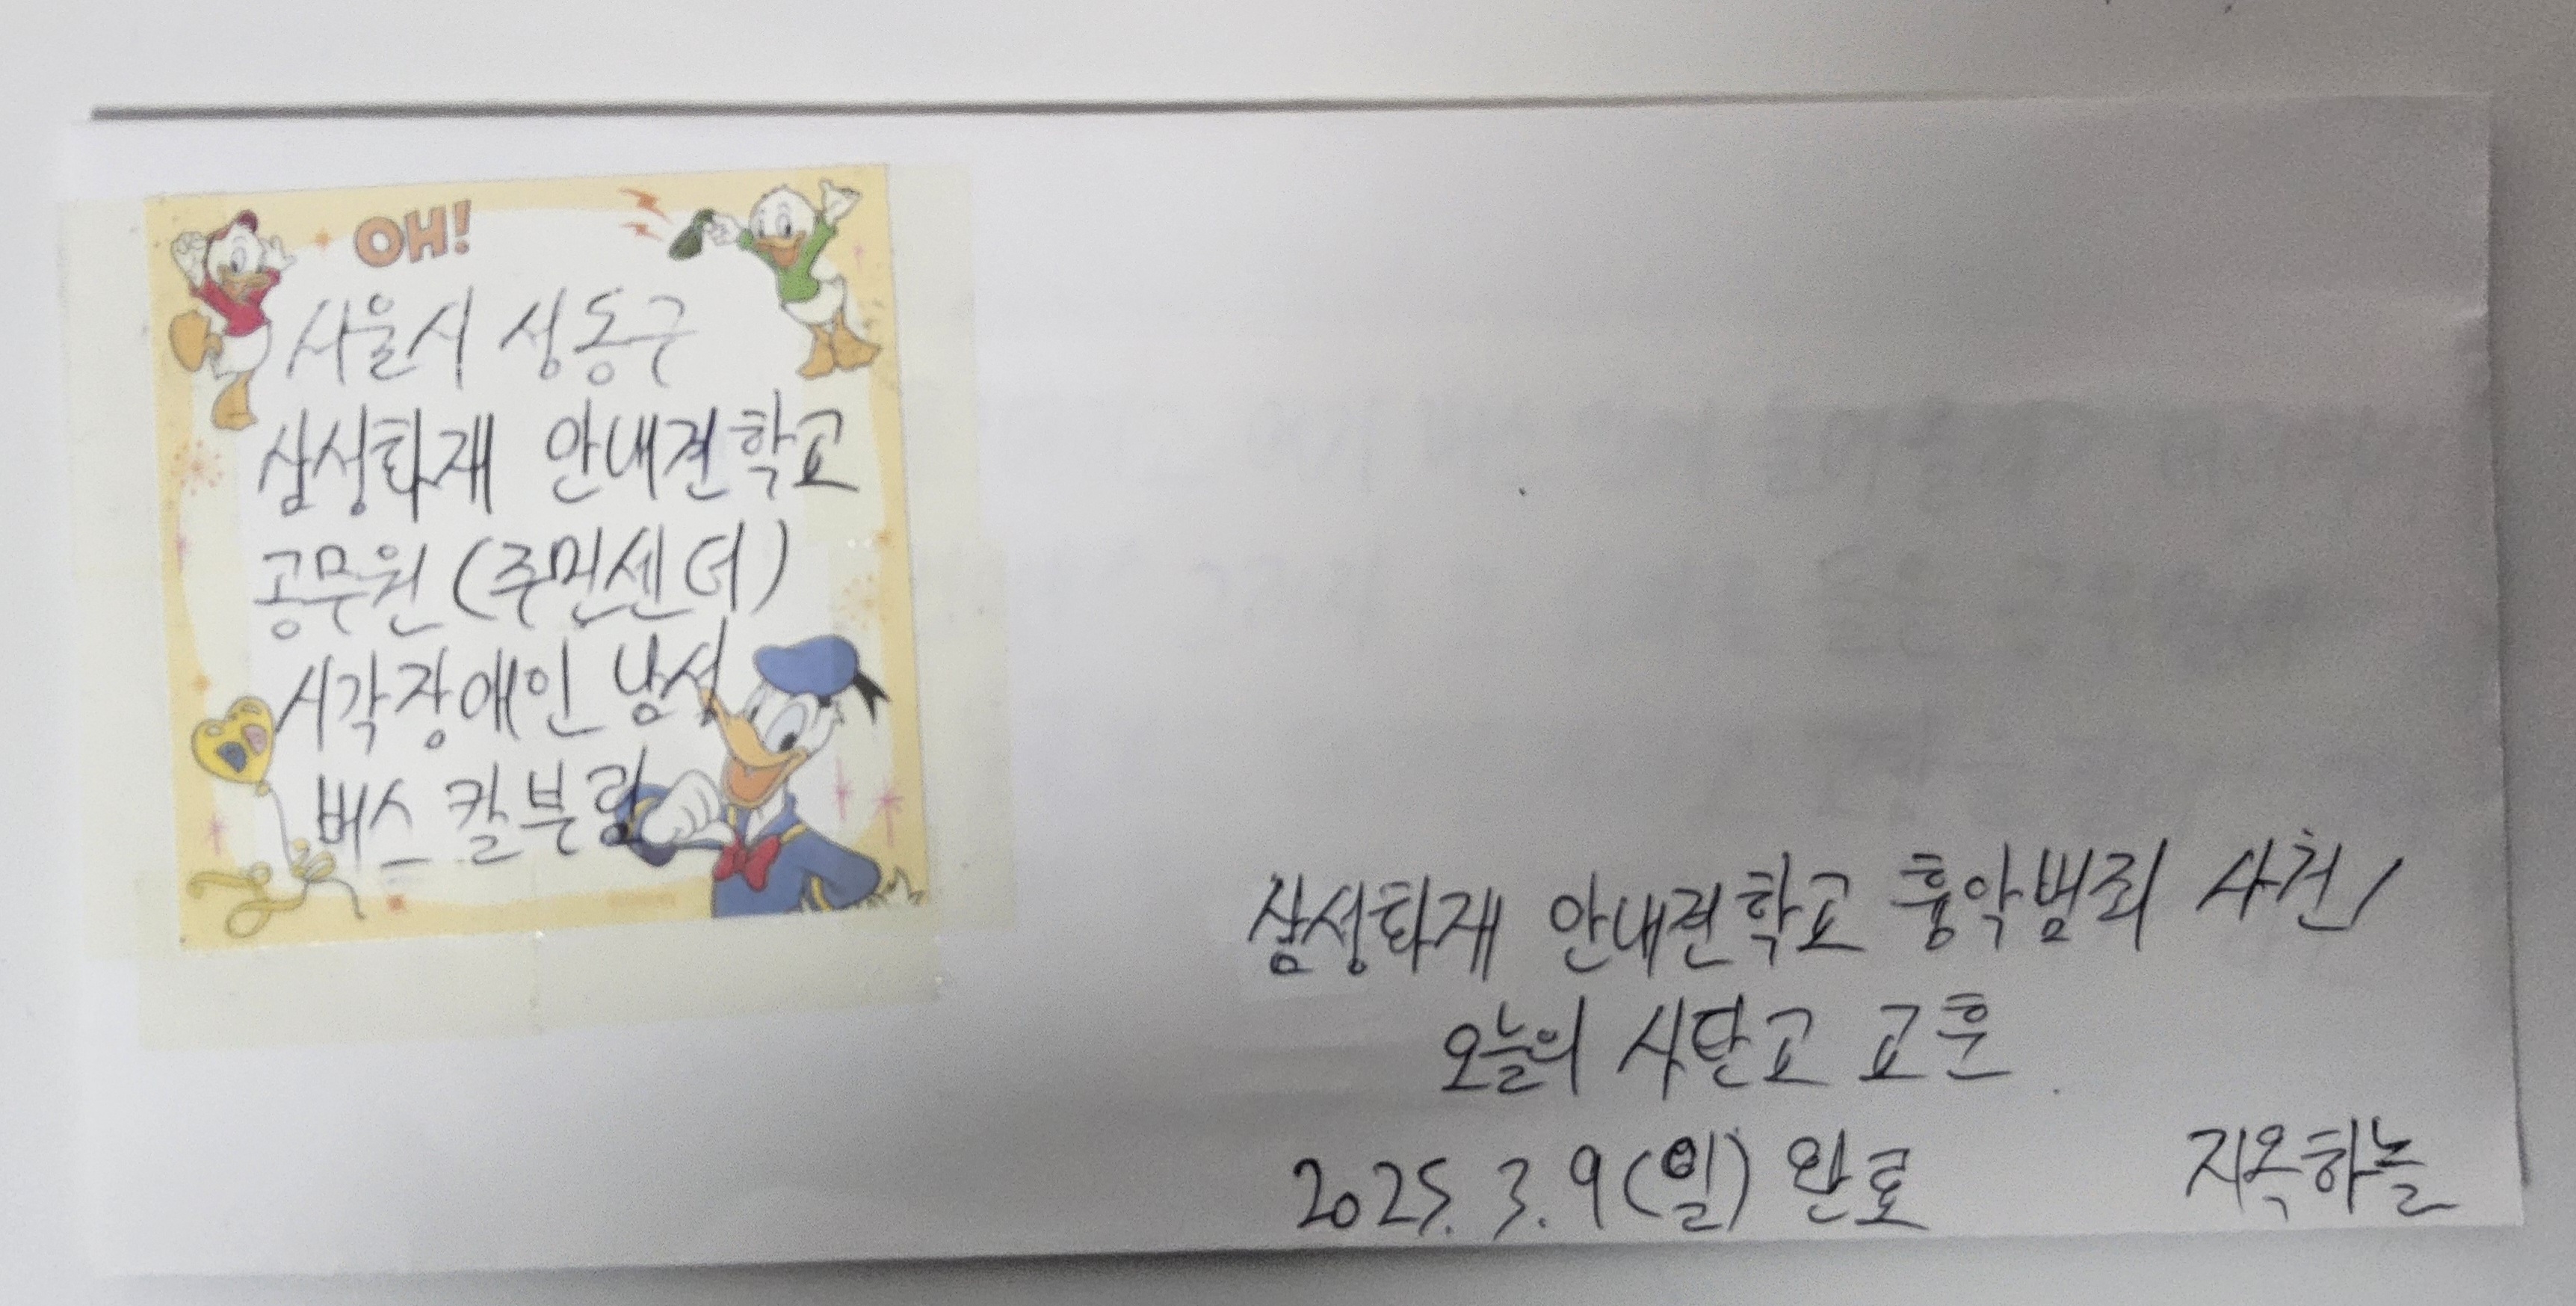 OH!
서울시 성동구
삼성화재 안내견학교
공무원 (주민센터)
시각장애인 남성
버스 칼부림
삼성화재 안내견학교 흉악범죄 사건/
오늘의 사탄고 교훈
2025. 3. 9 (일) 완료
지옥하늘